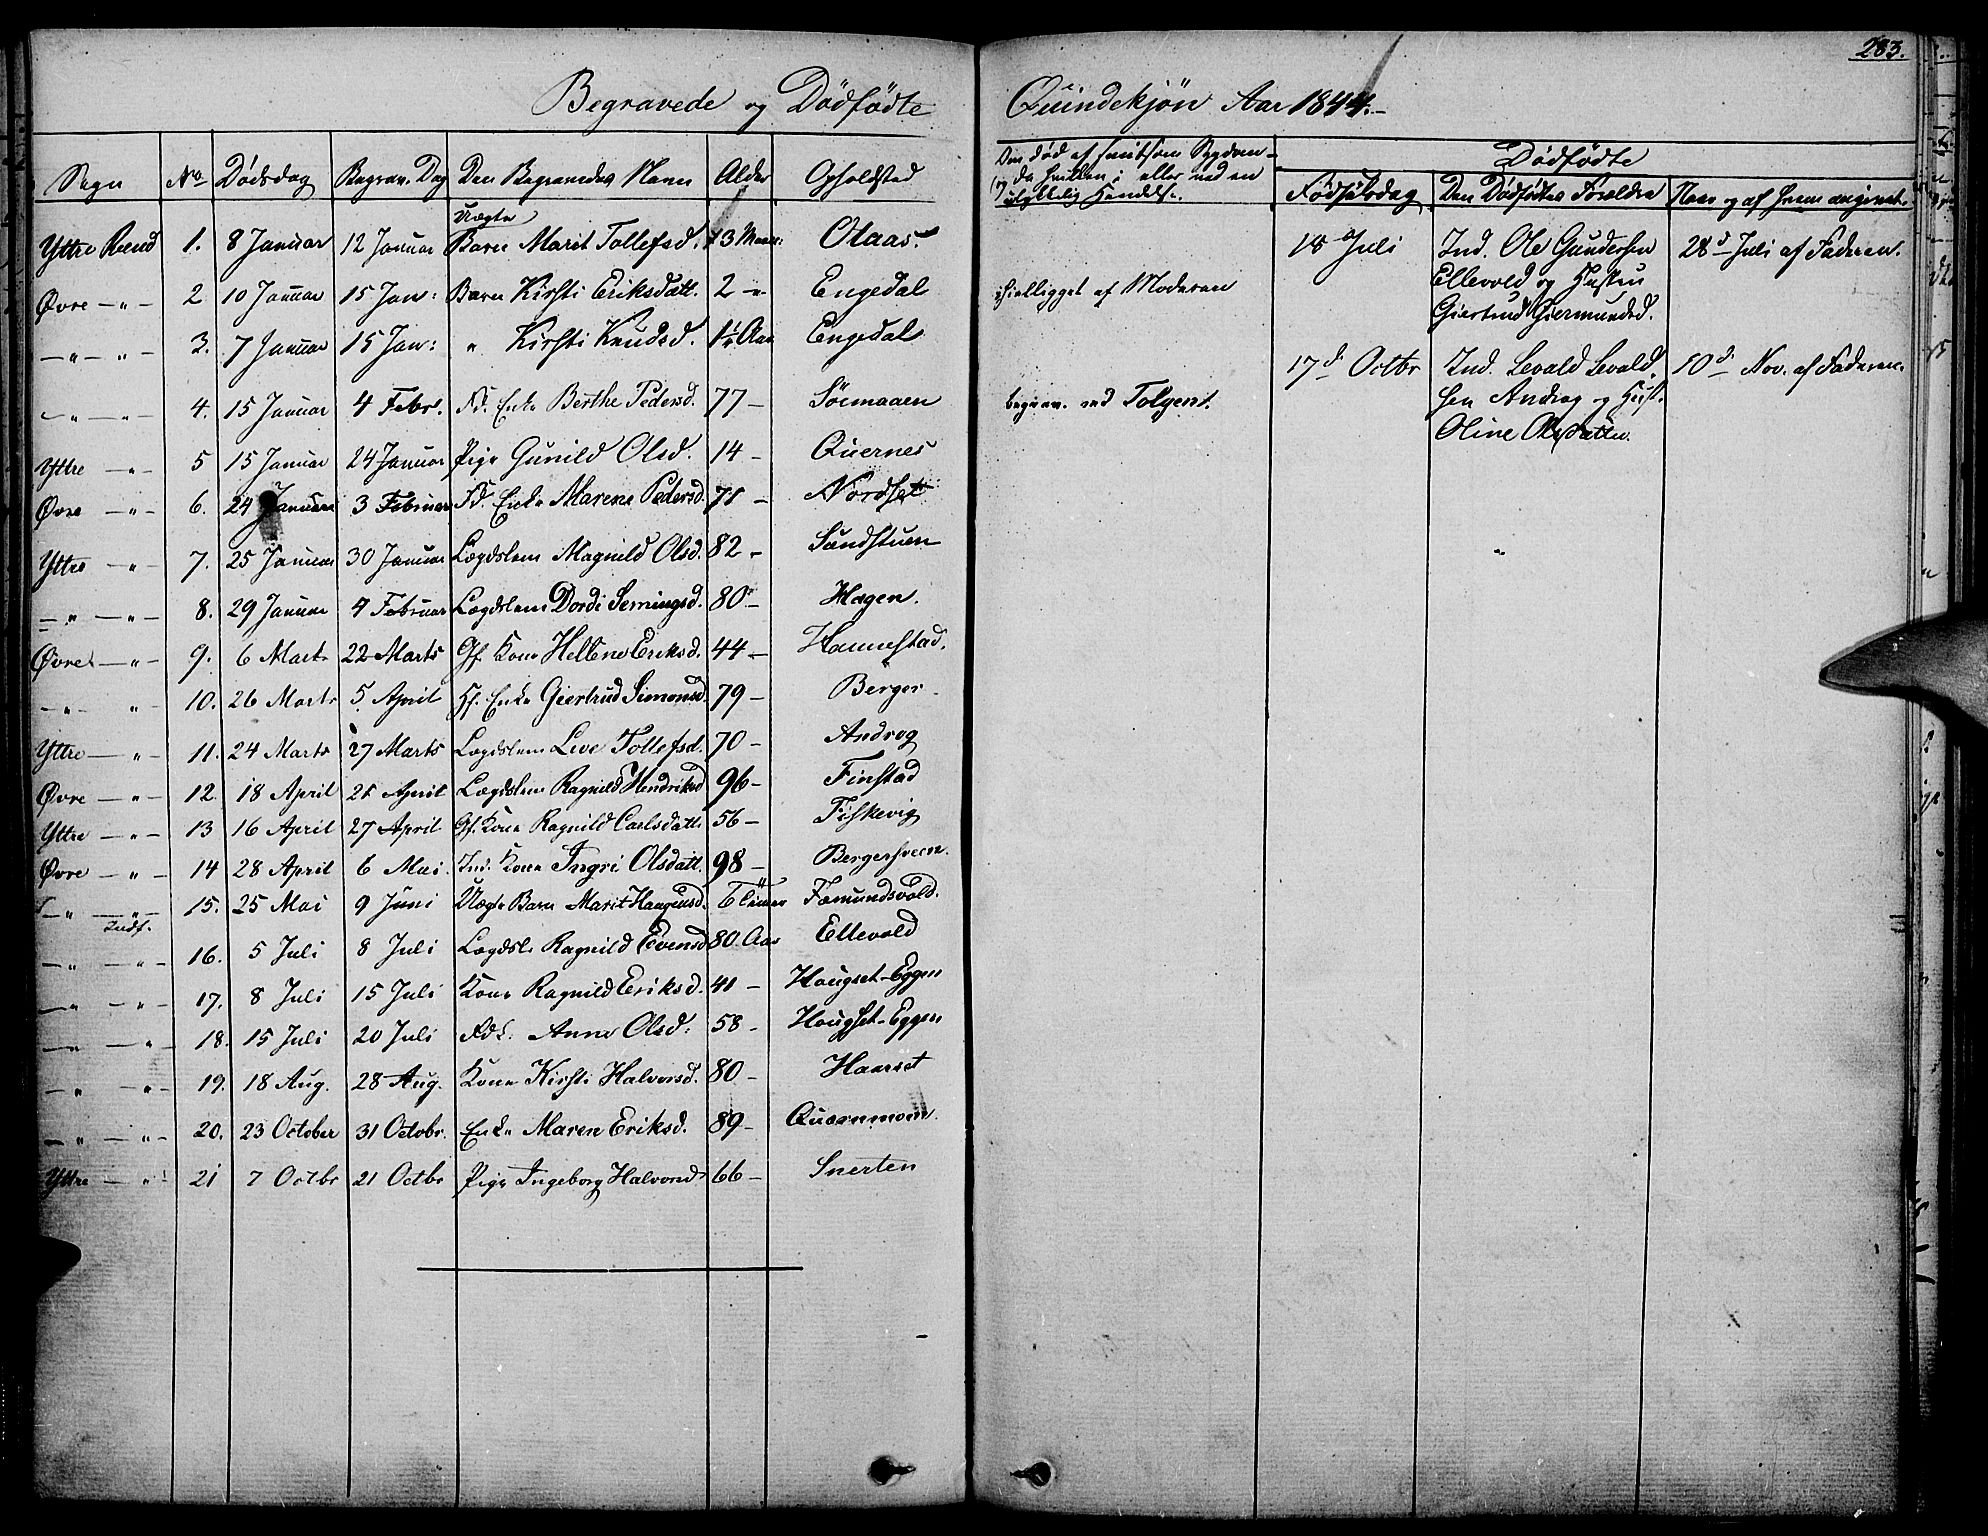 283.
Begravede og Dödfödte Quindekjön Aar 1844.-
Sogn No Dödsdag Begrav. Dag Den Begravedes Navn Alder Opholdsted
Den död af smitsom Sygdom
Dödfödte
Födselsdag Den Dödfödtes Foreldre Naar og af hvem angivet.
Yttre Rend 1. 8 Januar 12 Januar Uægte Barn Marit Tollefsd. 3 Olaas.
Øvre -„- 2 10 Januar 15 Jan: Barn Kirsti Eriksdatt. 2 -„- Engedal ihielligget af Moderen
-„- -„- 3. 7 Januar 15 Jan: „ Kirsti Knudsd. Aar Engedal
-„- -„- 4. 15 Januar 4 Febr. Fd. Enke Berthe Pedersd. 77 - Sörmaaen begrav. ved Tolgen.
Yttre -„- 5 15 Januar 24 Januar Pige Gunild Olsd. 14 - Quernes
Øvre -„- 6. 24 Januar 3 Februar Fd. Enke Marene Pedersd. 71 - Nordset
Yttre -„- 7. 25 Januar 30 Januar Lægdslem Magnild Olsd. 82 - Sundstuen
-„- -„- 8. 29 Januar 4 Februar Lægdslem Dordi Semingsd. 80 - Hagen.
Øvre -„- 9. 6 Marts 22 Marts Gf. Kone Hellene Eriksd. 44 - Hannestad.
-„- „- 10. 26 Marts 5 April Hf. Enke Giertrud Simonsd. 79 - Berger
Yttre -„- 11. 24 Marts 27 Marts Lægdslem Live Tollefsd. 70 - Androg
Øvre -„- 12. 18 April 21 April Lægdslem Ragnild Hendriksd 96 - Finstad
Yttre -„- 13 16 April 27 April Gf. Kone Ragnild Carlsdatt. 56 - Fiskevig
Øvre -„- 14 28 April 6 Mai Ind. Kone Ingri Olsdatt. 98 - Bergersveen.
-„- -„- 15. 25 Mai 9 Juni Uægte Barn Marit Haagensd. Timer Fæmundsvold.
Indf.
-„- -„- 16. 5 Juli 8 Juli Lægdsl. Ragnild Evensd 80 Aar Ellevold
-„- -„- 17. 8 Juli 15 Juli Kone Ragnild Eriksd. 41 - Hougset-Eggen
-„- -„- 18. 15 Juli 20 Juli Anne Olsd: 58 - Hougset-Eggen
-„- „- 19. 18 Aug. 28 Aug. Kone Kirsti Halvorsd. 80 - Haarset
-„- -„- 20. 23 October 31 Octobr. Enke Maren Eriksd. 89 - Quernmoen.
Yttre -„- 21 7 Octbr 21 Octbr Pige Ingeborg Halvorsd 66 - Snerten
18 Juli Ind. Ole Gundersen 28d Juli af Faderen.
Ellevold og Hustru
Giertrud Giermundsd.
17d Octbr Ind. Sevald Sevald- 10d Nov. af Faderen.
sen Androg og Hust.
Oline Olsdatter.